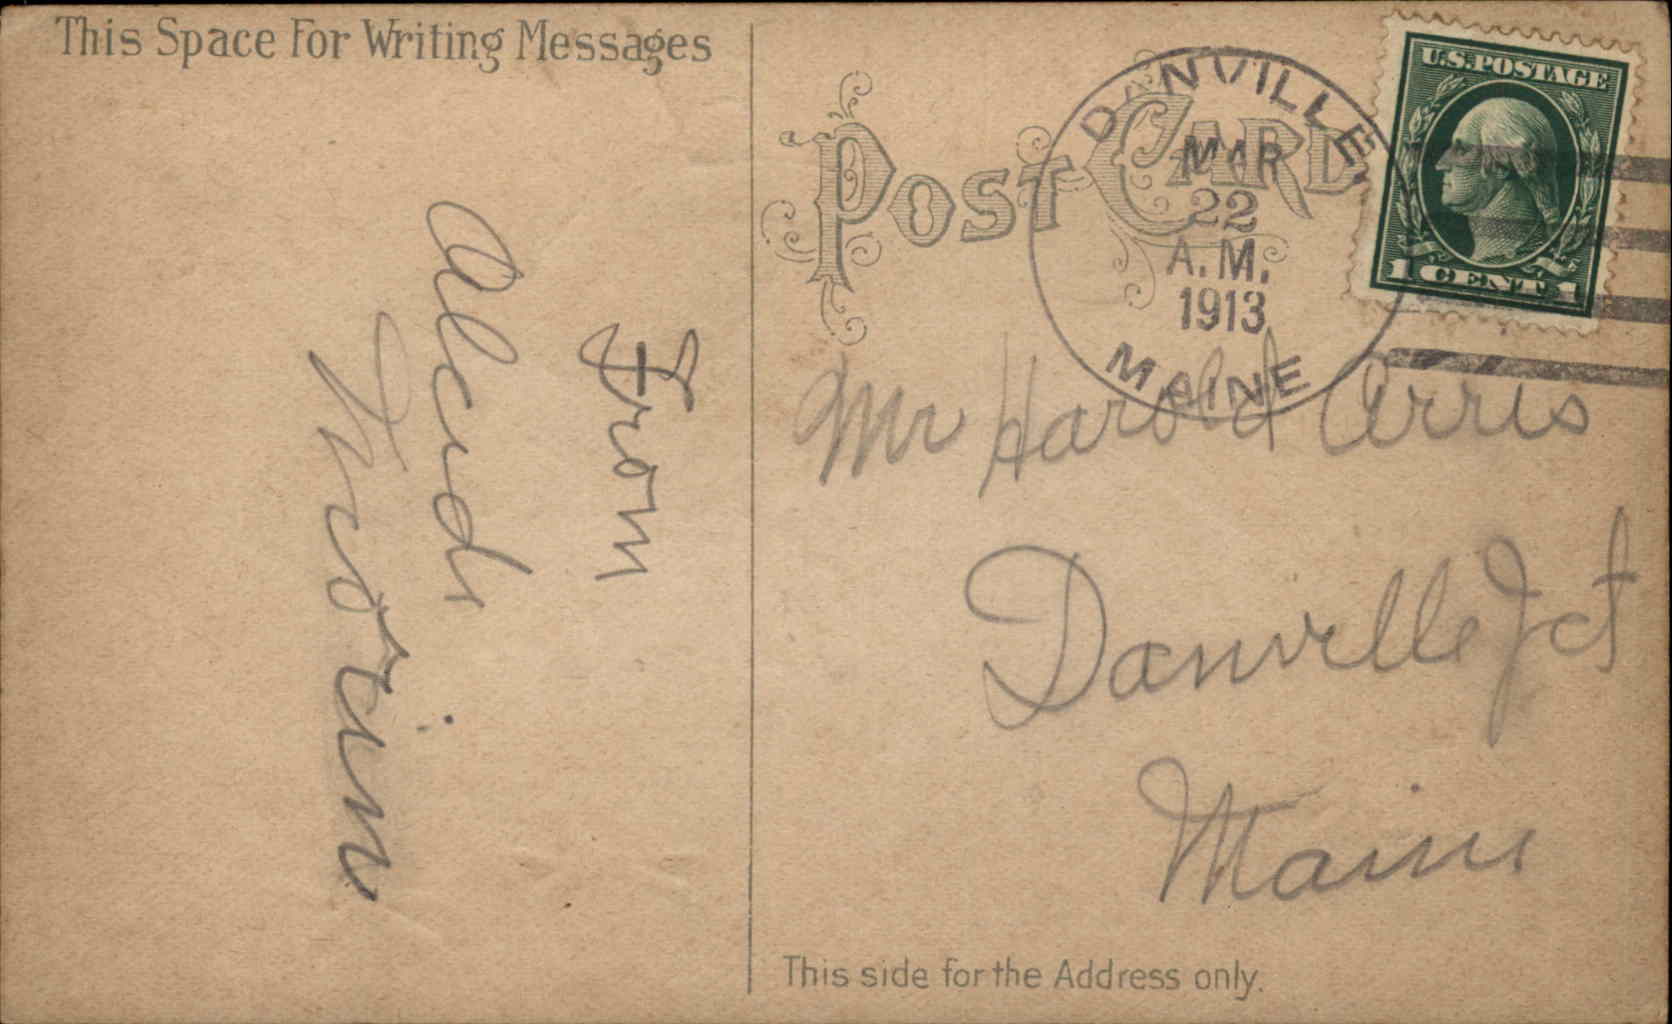 This Space For Writing Messages
From
POST CARD
DANVILLE
MAR
22
A.M.
1913
MAINE
U.S. POSTAGE
1 CENT 1
Mr Harold Arris
Danville Jct
Maine
This side for the Address only.